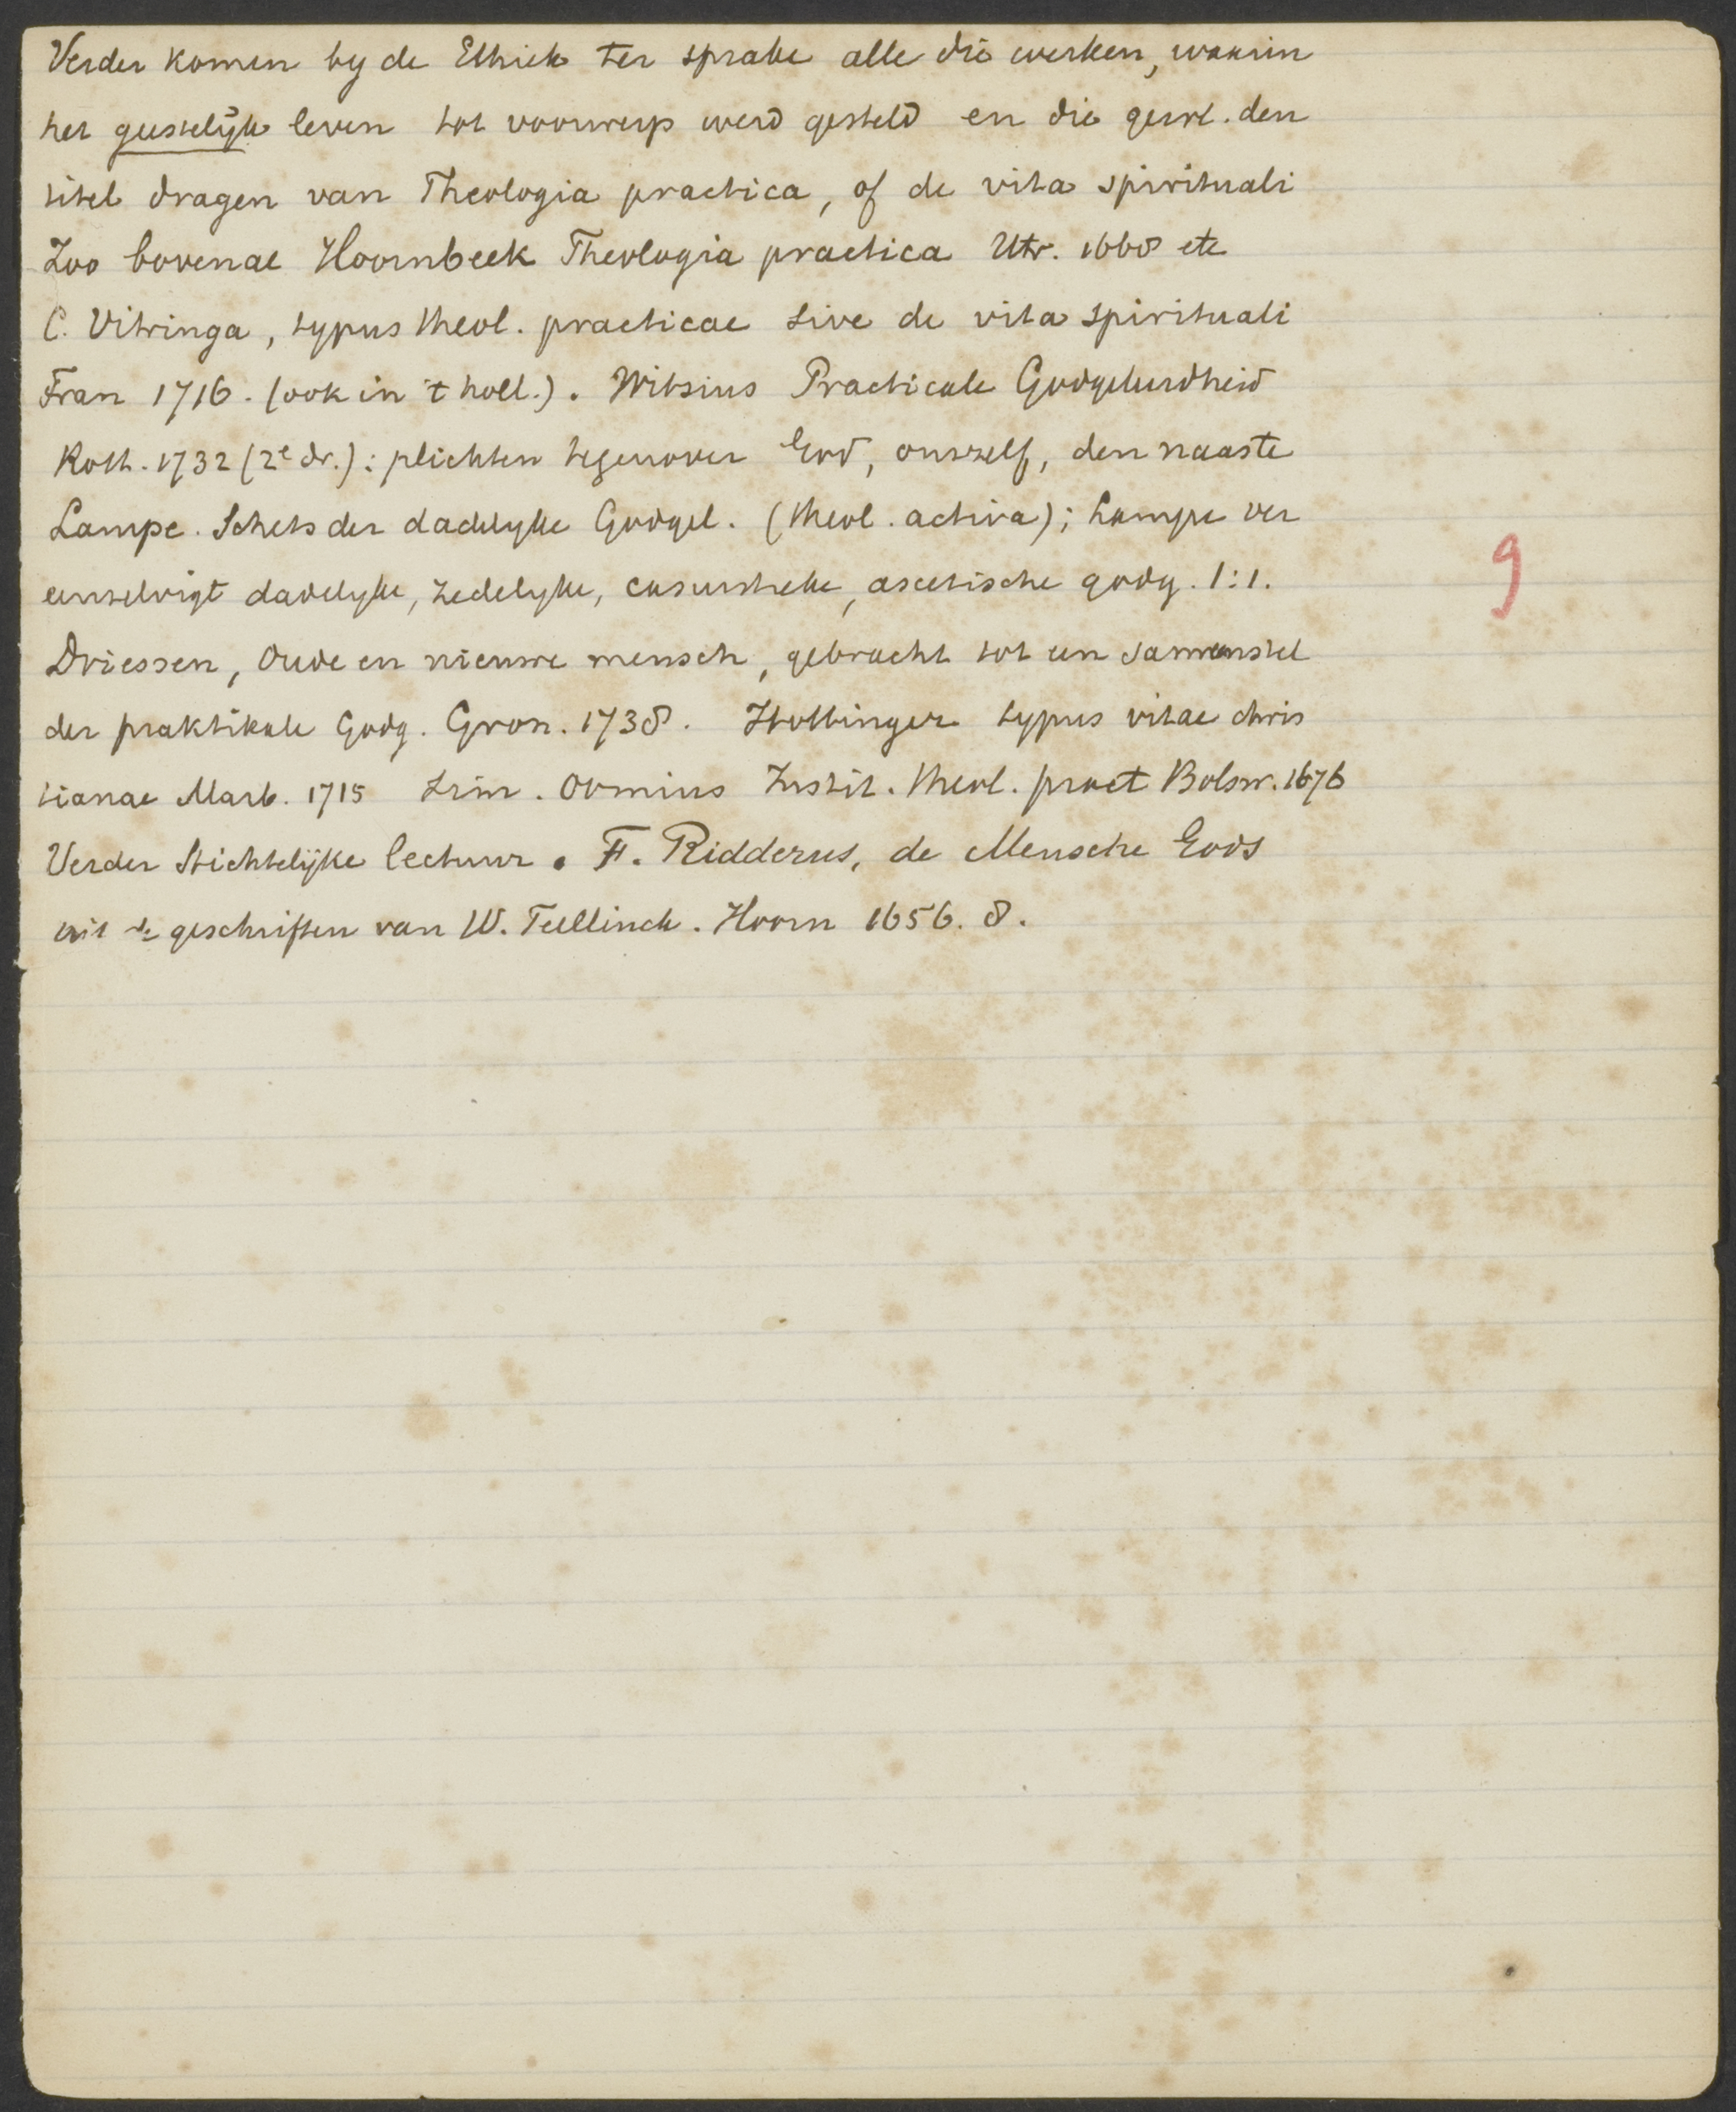 Verder komen by de Ethiek ter sprake alle die werken, waarin
het geestelijk leven tot voorwerp werd gesteld en die gew. den
titel dragen van Theologia practica, of de vita spirituali
Zoo bovenal Hoornbeek Theologia practica Utr. 1668 etc
C. Vitringa, typus theol. practicae sive de vita spirituali
Fran 1716. (ook in 't holl.). Witsius Practicale Godgeleerdheid
Rott. 1732 (2e dr.): plichten tegenover God, onszelf, den naaste
Lampe. Schets der dadelyke Godgel. (theol. activa); Lampe ver
eenzelvigt dadelyke, zedelyke, casuistieke, ascetische godg. 1:1.
Driessen, Oude en nieuwe mensch, gebracht tot een samenstel
der praktikale Godg. Gron. 1738. Hottinger typus vitae chris
tianae Marb. 1715 Sim. Oomius Instit. theol. pract Bolsw. 1676
Verder Stichtelijke lectuur. F. Ridderus, de Mensche Gods
uit de geschriften van W. Teellinck. Hoorn 1656. 8.
9